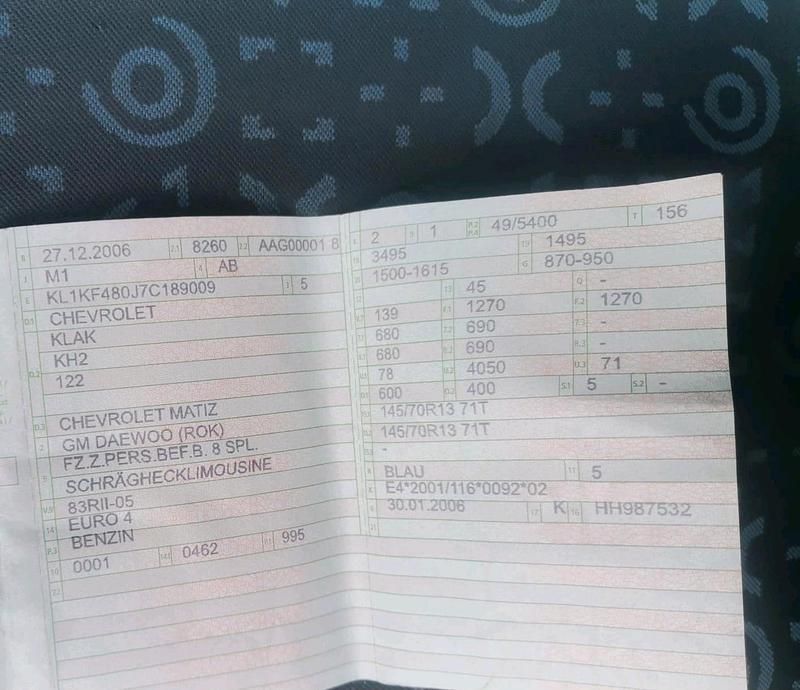 B 27.12.2006 2.1 8260 2.2 AAG00001 8
J M1 4 AB
E KL1KF480J7C189009 3 5
D.1 CHEVROLET
KLAK
D.2 KH2
122
D.3 CHEVROLET MATIZ
2 GM DAEWOO (ROK)
5 FZ.Z.PERS.BEF.B. 8 SPL.
SCHRÄGHECKLIMOUSINE
V.9 83RII-05
14 EURO 4
P.3 BENZIN
10 0001 14.1 0462 P.1 995
22
L 2 9 1 P.2 P.4 49/5400 T 156
18 3495 19 1495
20 1500-1615 G 870-950
12 13 45 Q -
V.7 139 F.1 1270 F.2 1270
7.1 680 7.2 690 7.3 -
8.1 680 8.2 690 8.3 -
U.1 78 U.2 4050 U.3 71
O.1 600 O.2 400 S.1 5 S.2 -
15.1 145/70R13 71T
15.2 145/70R13 71T
15.3 -
R BLAU 11 5
K E4*2001/116*0092*02
6 30.01.2006 17 K 16 HH987532
21